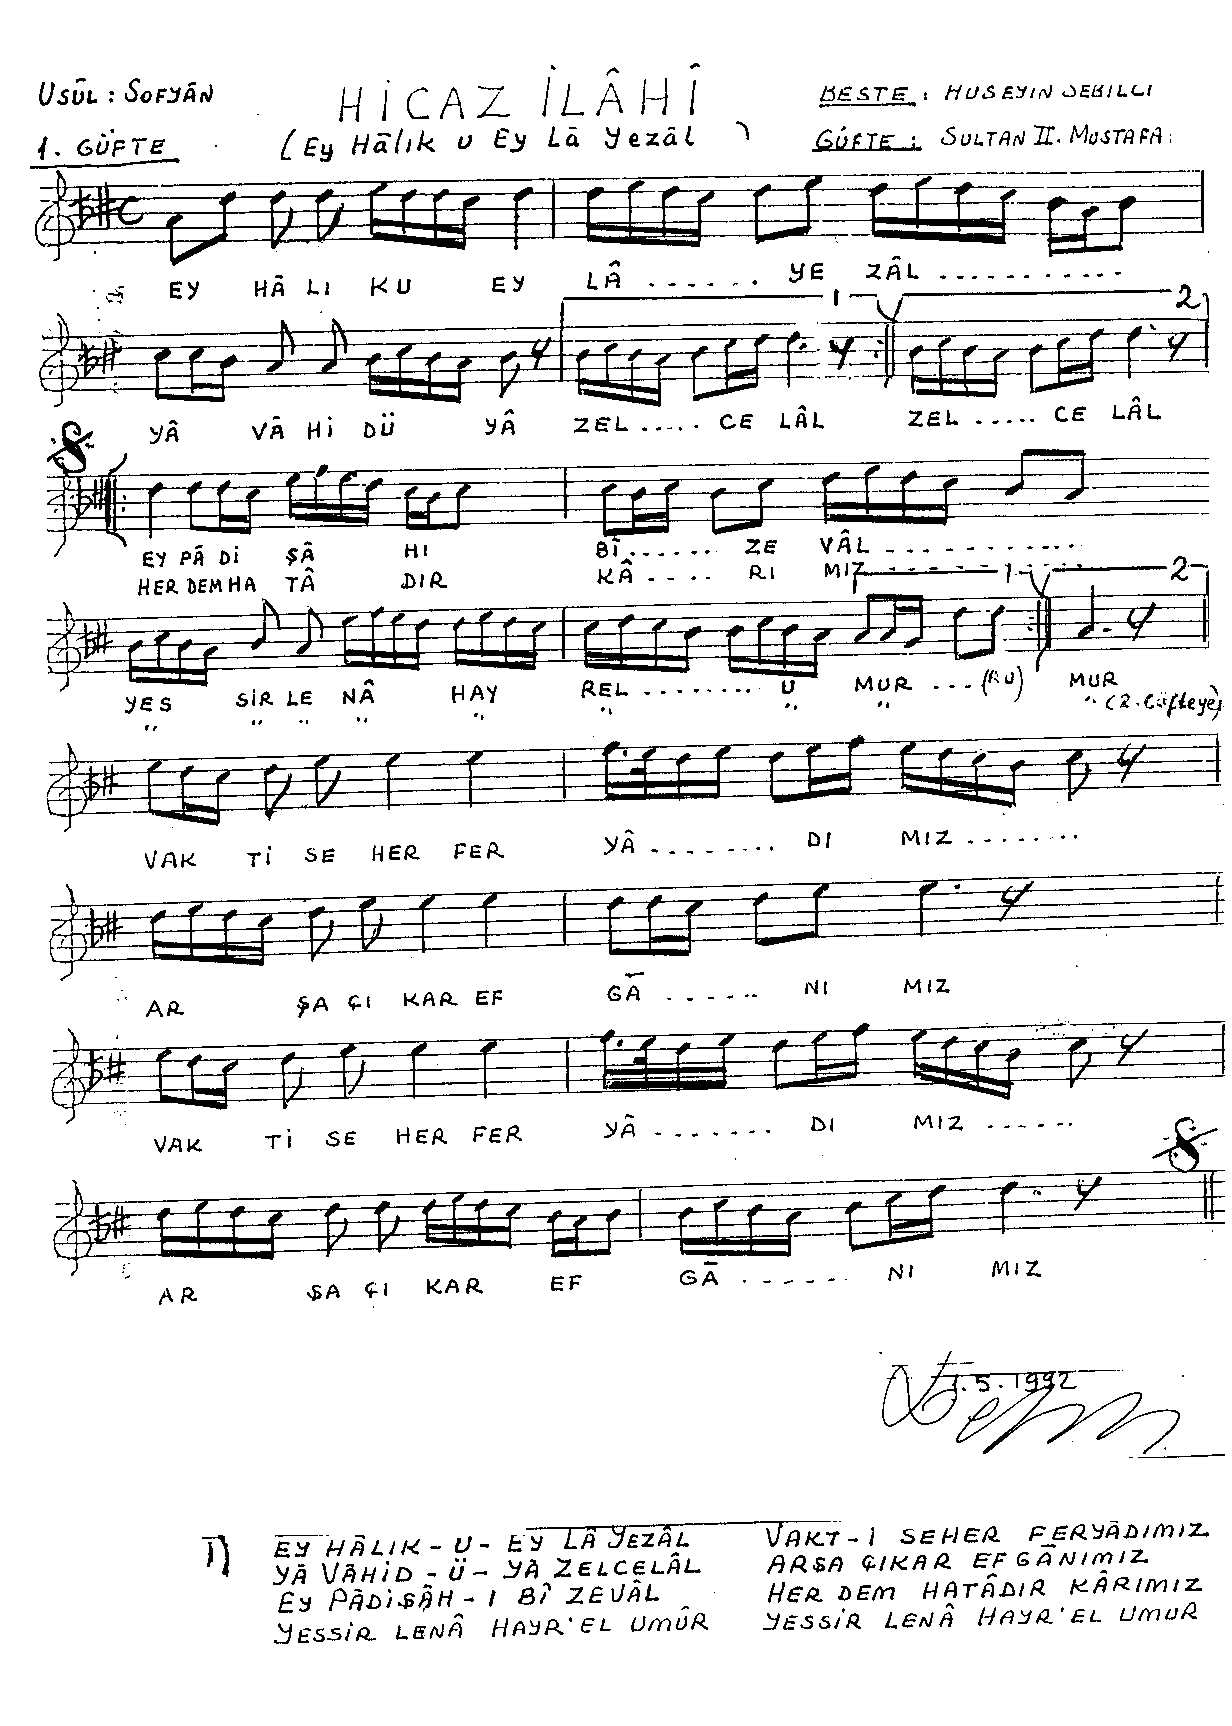 USÛL : SOFYÂN
HİCAZ İLÂHÎ
BESTE : HÜSEYİN SEBİLCİ
1. GÜFTE
(Ey Hâlık u Ey Lâ Yezâl)
GÜFTE : SULTAN II. MUSTAFA
EY HÂ LI KU EY LÂ ...... YE ZÂL ............
1 2
YÂ VÂ Hİ DÜ YÂ ZEL ..... CE LÂL ZEL ..... CE LÂL
EY PÂ Dİ ŞÂ HI BÎ ...... ZE VÂL ............
HER DEM HA TÂ DIR KÂ ..... RI MIZ ............
1 2
YES SİR LE NÂ HAY REL ........ U MUR ... (RU) MUR
" " " " " " " " " (2. Güfteye)
VAK Tİ SE HER FER YÂ ........ DI MIZ ........
AR ŞA ÇI KAR EF GÂ ...... NI MIZ
VAK Tİ SE HER FER YÂ ........ DI MIZ ......
AR ŞA ÇI KAR EF GÂ ...... NI MIZ
1.5.1992
1) EY HÂLIK - U - EY LÂ YEZÂL
YÂ VÂHİD - Ü - YÂ ZELCELÂL
EY PÂDİŞÂH - I BÎ ZEVÂL
YESSİR LENÂ HAYR'EL UMÛR
VAKT - I SEHER FERYÂDIMIZ
ARŞA ÇIKAR EFGÂNIMIZ
HER DEM HATÂDIR KÂRIMIZ
YESSİR LENÂ HAYR'EL UMUR